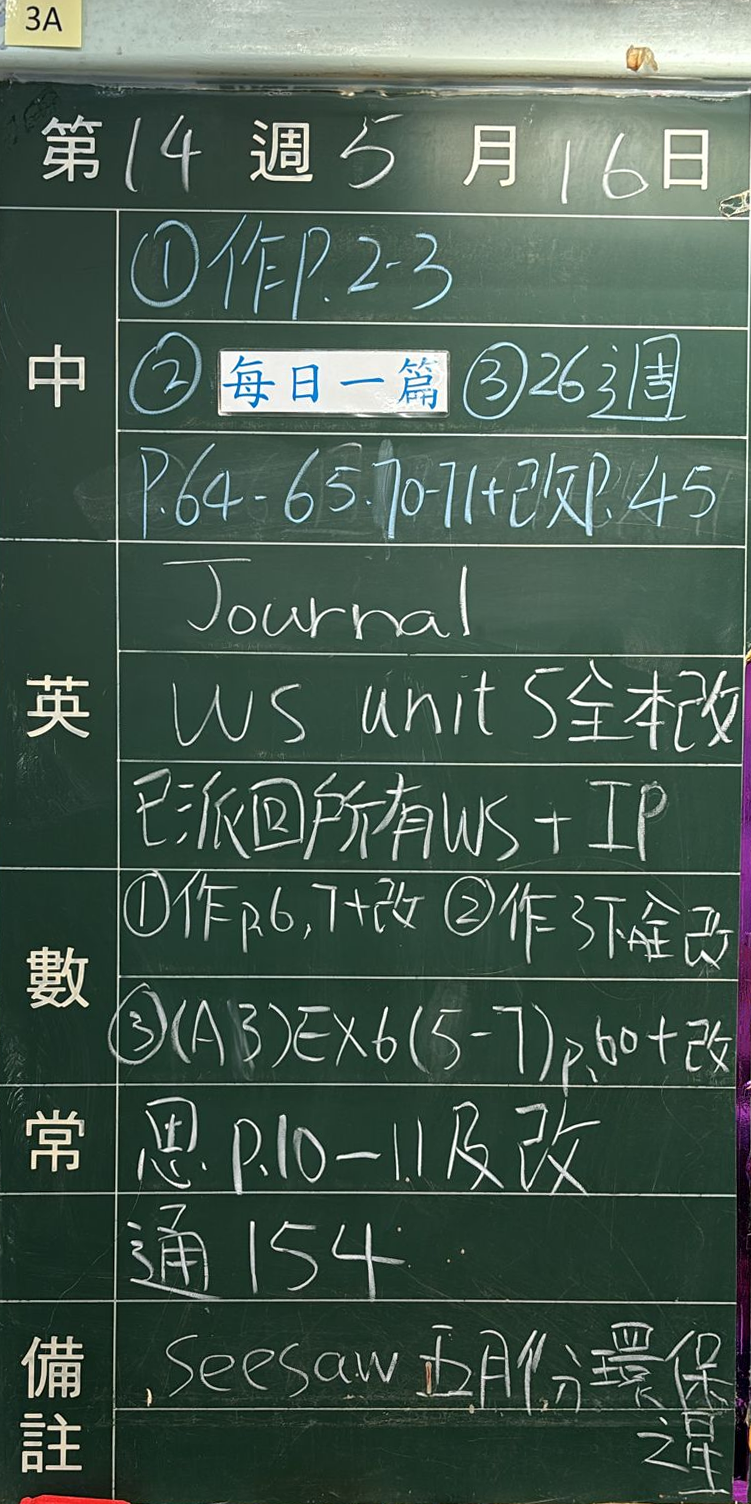 3A
第14週5月16日
中
①作P.2-3
②每日一篇③26週
P.64-65.70-71+改P.45
英
Journal
WS unit 5全本改
已派回所有WS+IP
數
①作p.6,7+改②作3下A全改
③(A3)EX6(5-7)p.60+改
常
思.P.10-11及改
通154
備註
seesaw五月份環保
之星